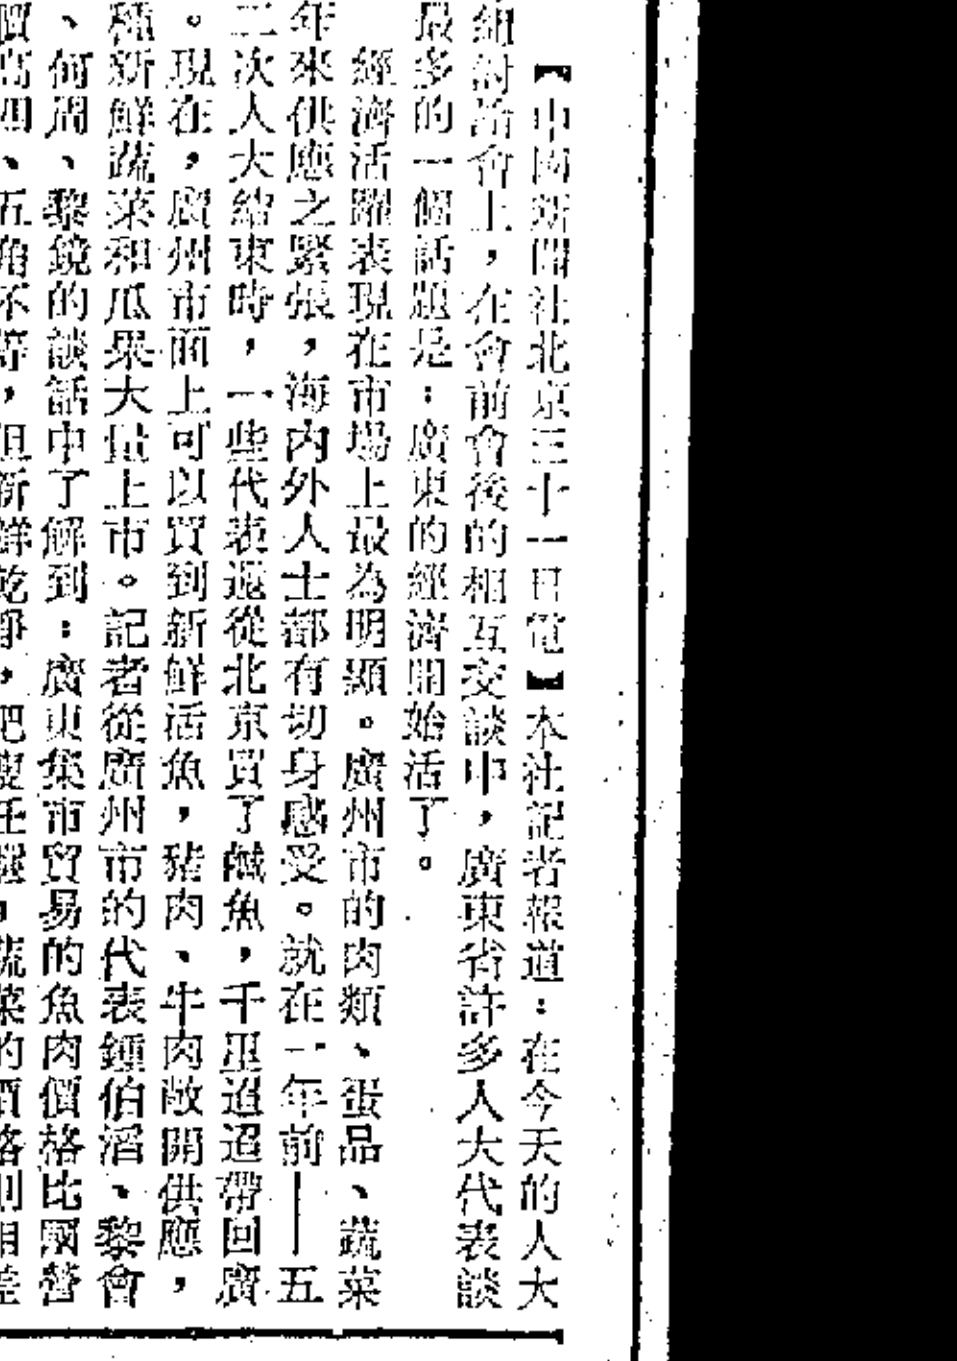 【中國新聞社北京三十一日電】本社記者報道：在今天的人大
組討論會上，在會前會後的相互交談中，廣東省許多人大代表談
最多的一個話題是：廣東的經濟開始活了。
經濟活躍表現在市場上最為明顯。廣州市的肉類、蛋品、蔬菜
年來供應之緊張，海內外人士都有切身感受。就在一年前——五
二次人大結束時，一些代表還從北京買了鹹魚，千里迢迢帶回廣
。現在，廣州市面上可以買到新鮮活魚，豬肉、牛肉敞開供應，
種新鮮蔬菜和瓜果大量上市。記者從廣州市的代表鍾伯滔、黎會
、何周、黎鏡的談話中了解到：廣東集市貿易的魚肉價格比國營
價高四、五角不等，但新鮮乾淨，肥瘦任選，蔬菜的價格則相差